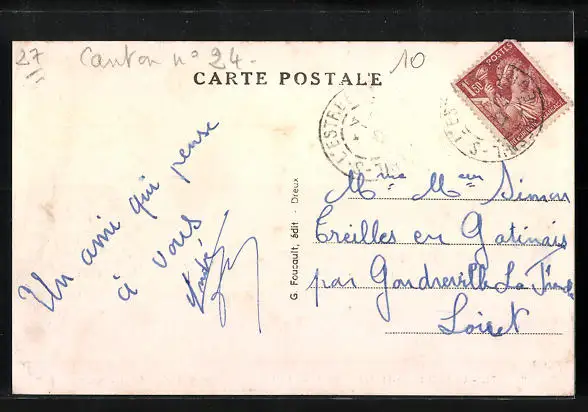 27 Canton n° 24.
10
CARTE POSTALE
POSTES
1F50
ST-L'ESTRÉE
Un ami qui pense
à vous
André
G. Foucault, édit - Dreux
Mme Meur Simon
Treilles en Gatinais
par Gondreville La Franche
Loiret